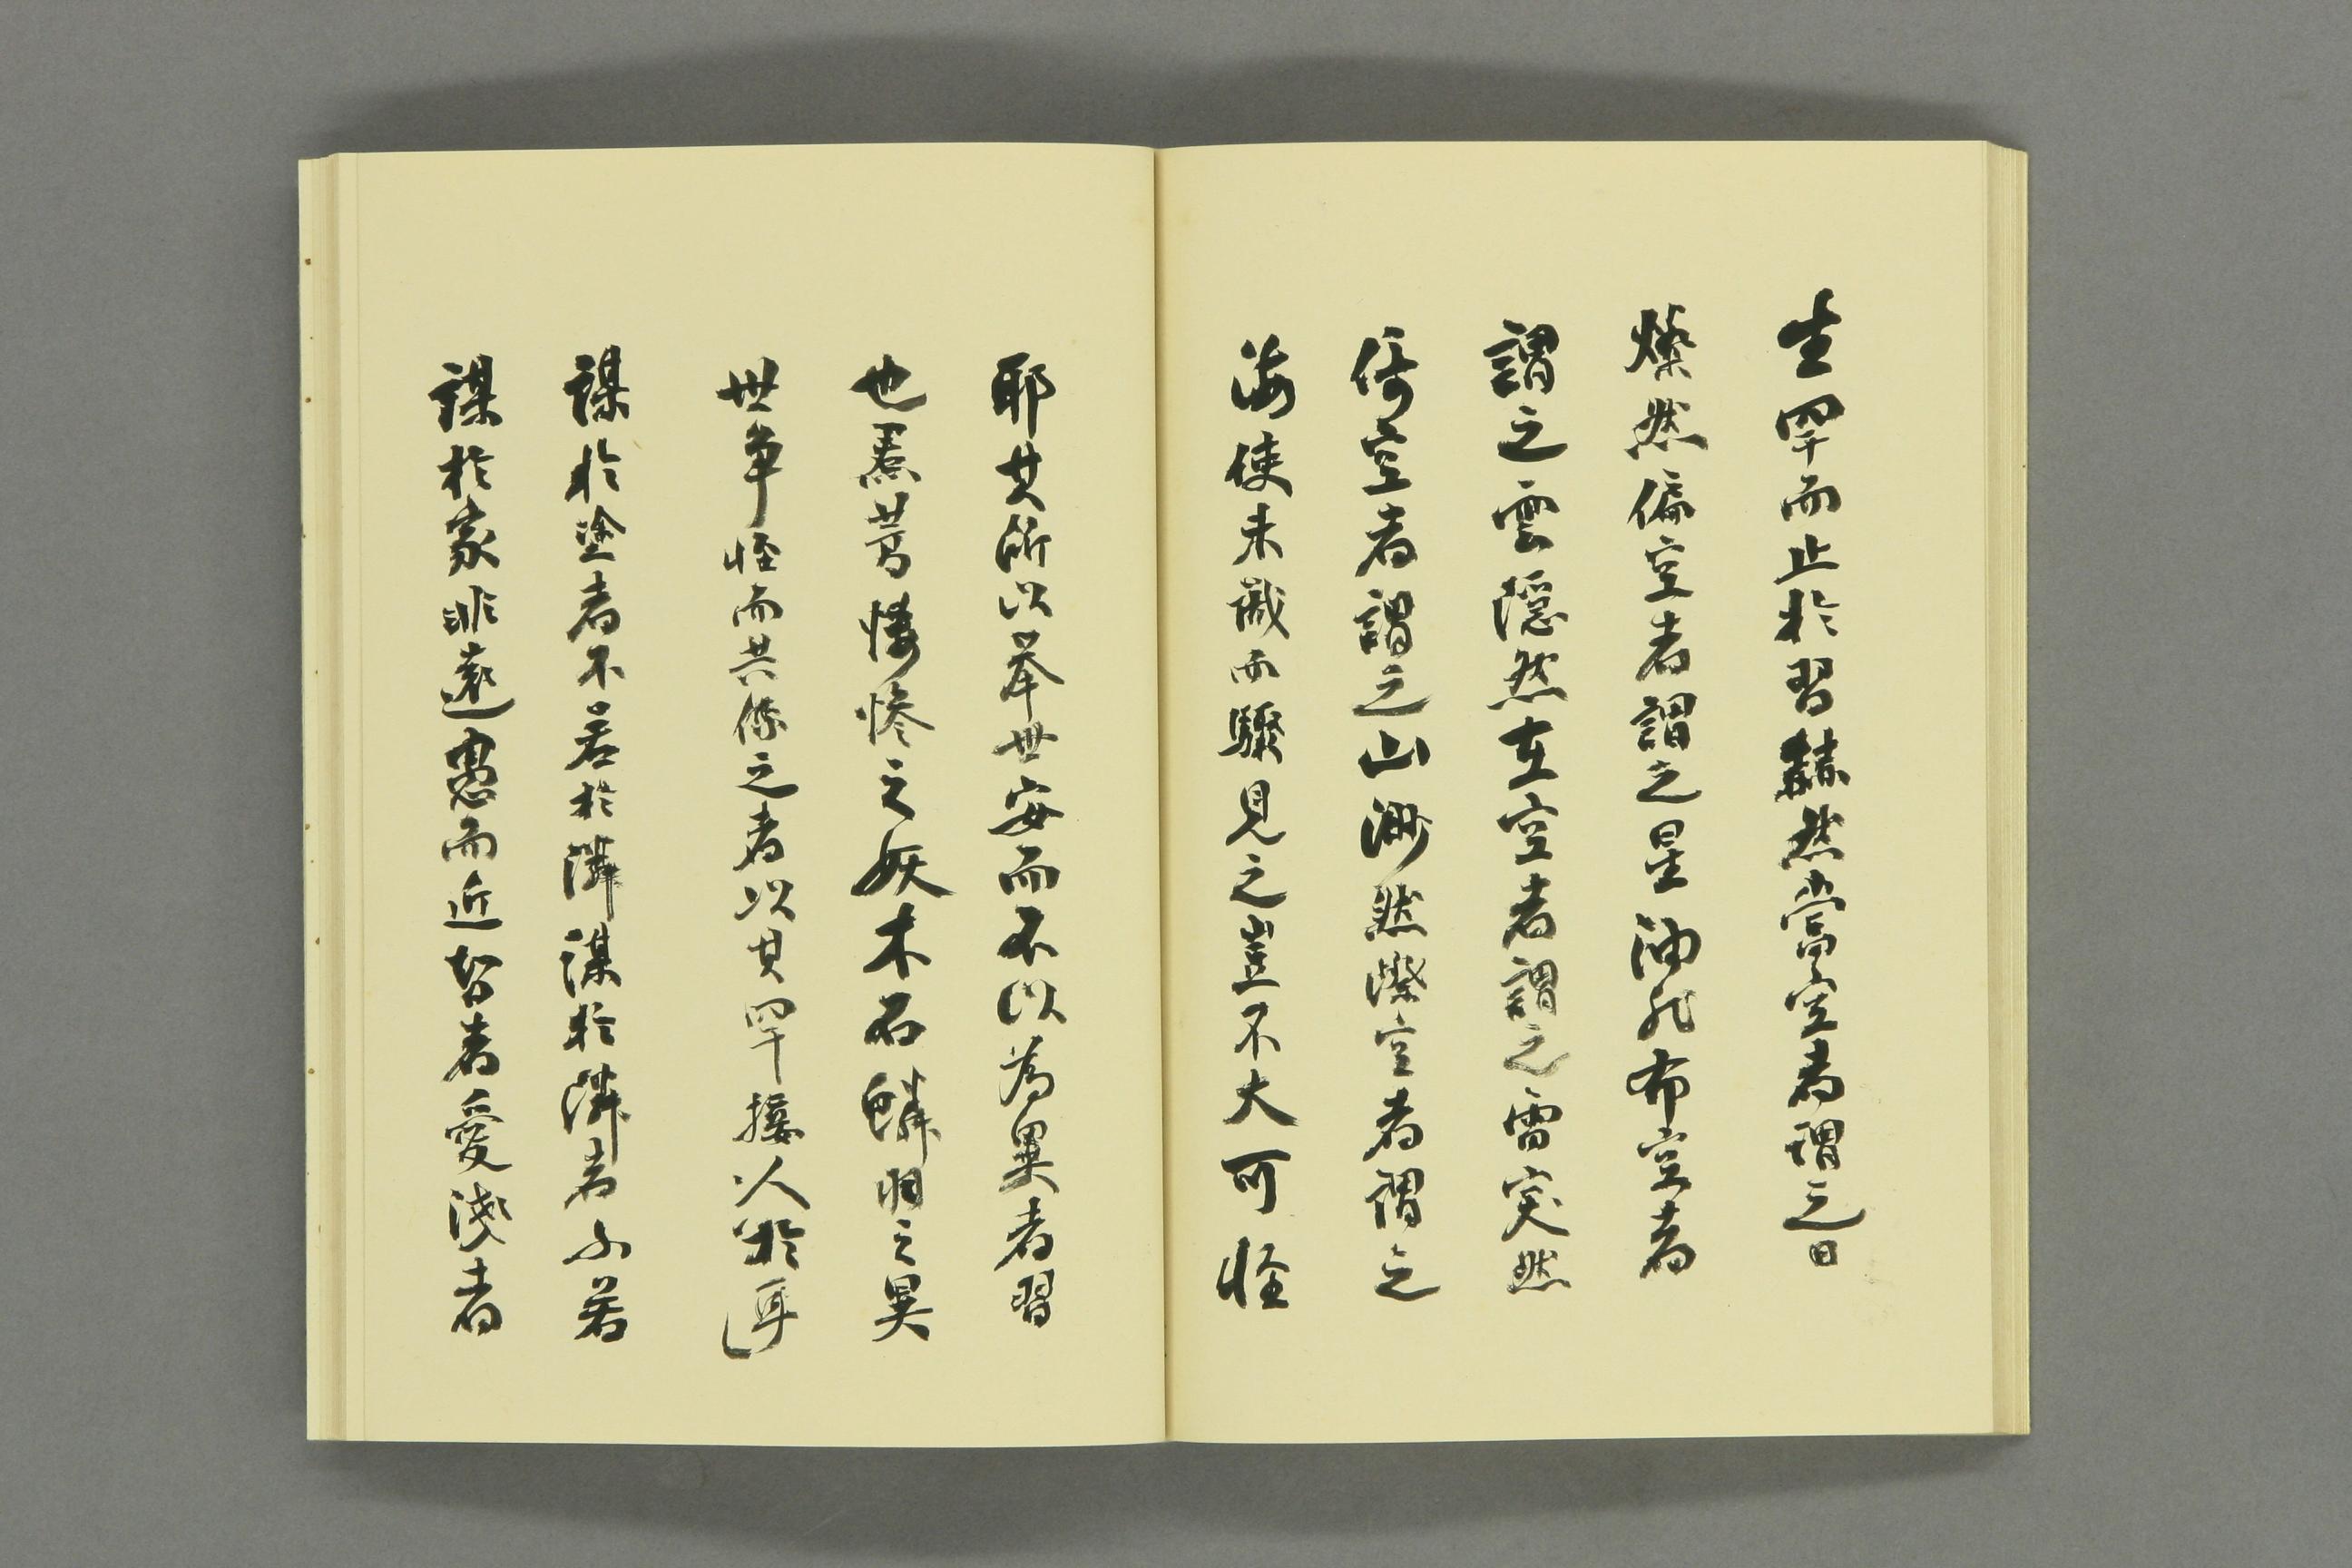 生罕而止於習赫然當空者謂之日
燦然徧空者謂之星油然布空者
謂之雲隱然在空者謂之雷突然
倚空者謂之山渺然際空者謂之
海使未識而驟見之豈不大可怪
耶其所以舉世安而不以為異者習
也焄蒿悽慘之妖木石鱗羽之異
世爭怪而共傳之者以其罕接人於耳
謀於塗者不若於隣謀於隣者不若
謀於家非遠愚而近智者愛淺者